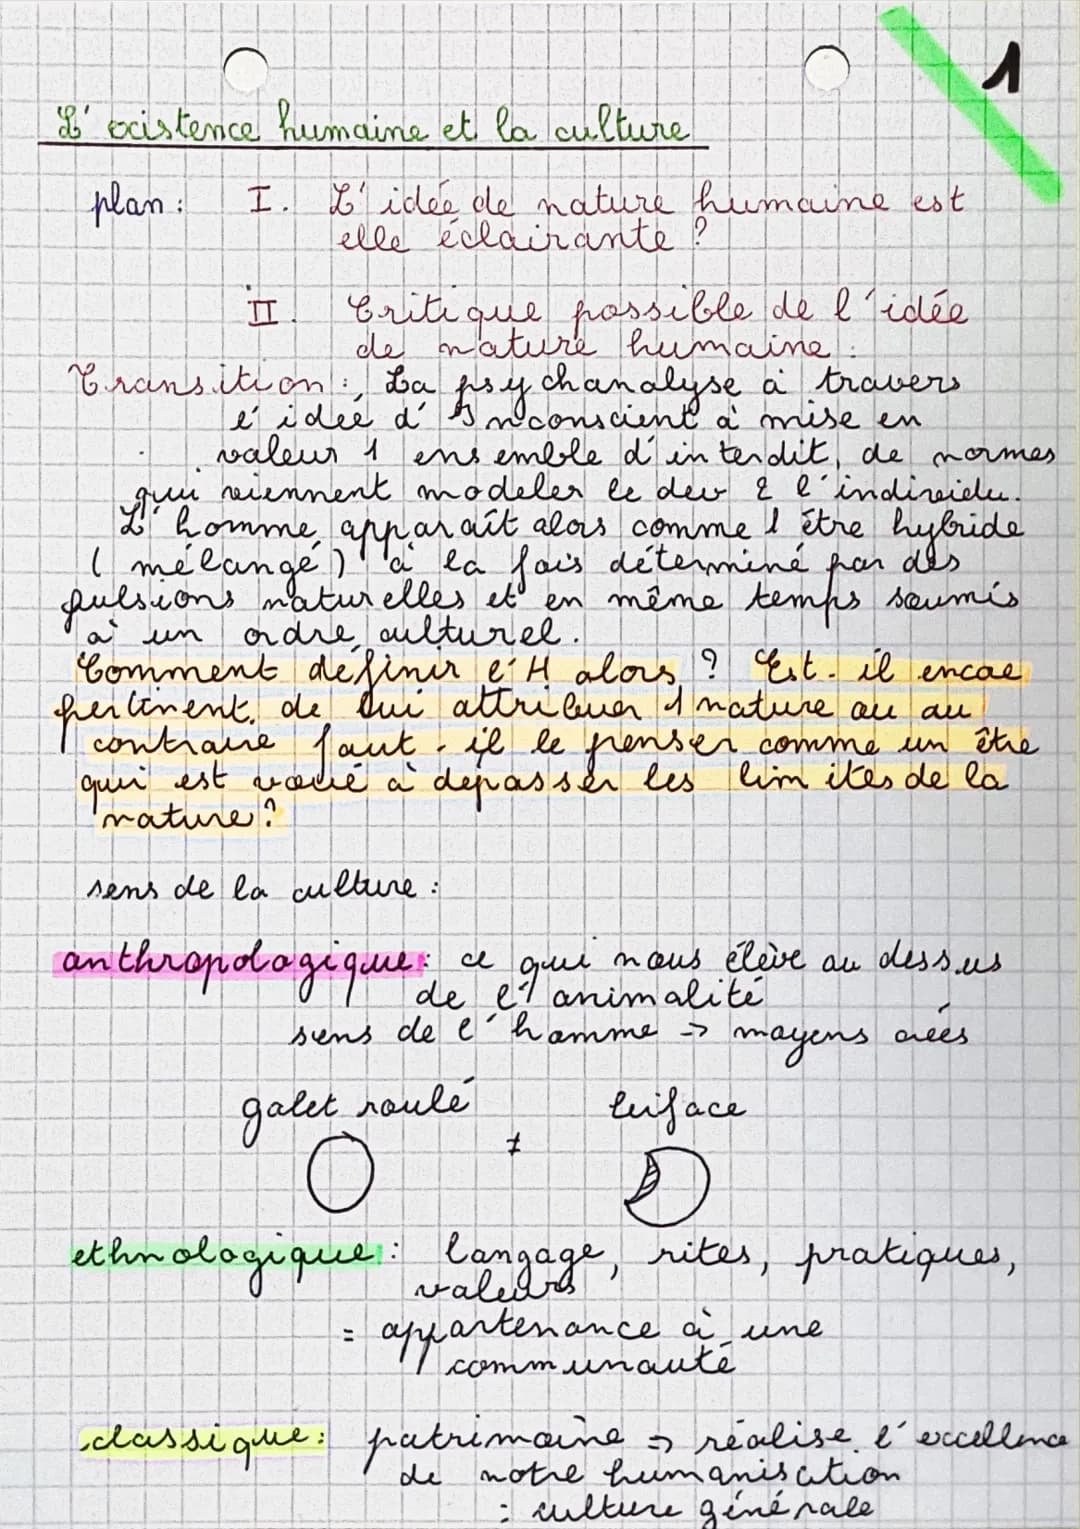 1
L'existence humaine et la culture
plan : I. L'idée de nature humaine est
elle éclairante ?
II. Critique possible de l'idée
de nature humaine.
Transition : La psychanalyse à travers
l'idée d'Inconscient à mise en
valeur 1 ensemble d'interdit, de normes
qui viennent modeler le dev & l'individu.
L'homme apparaît alors comme 1 être hybride
(mélangé) à la fois déterminé par des
pulsions naturelles et en même temps soumis
à un ordre culturel.
Comment définir l'H alors ? Est-il encore
pertinent de lui attribuer 1 nature ou au
contraire faut-il le penser comme un être
qui est voué à dépasser les limites de la
nature ?
sens de la culture :
anthropologique : ce qui nous élève au dessus
de l'animalité
sens de l'homme → moyens créés
galet roulé ≠ biface
ethnologique : langage, rites, pratiques,
valeurs
= appartenance à une
communauté
classique : patrimoine → réalise l'excellence
de notre humanisation
: culture générale